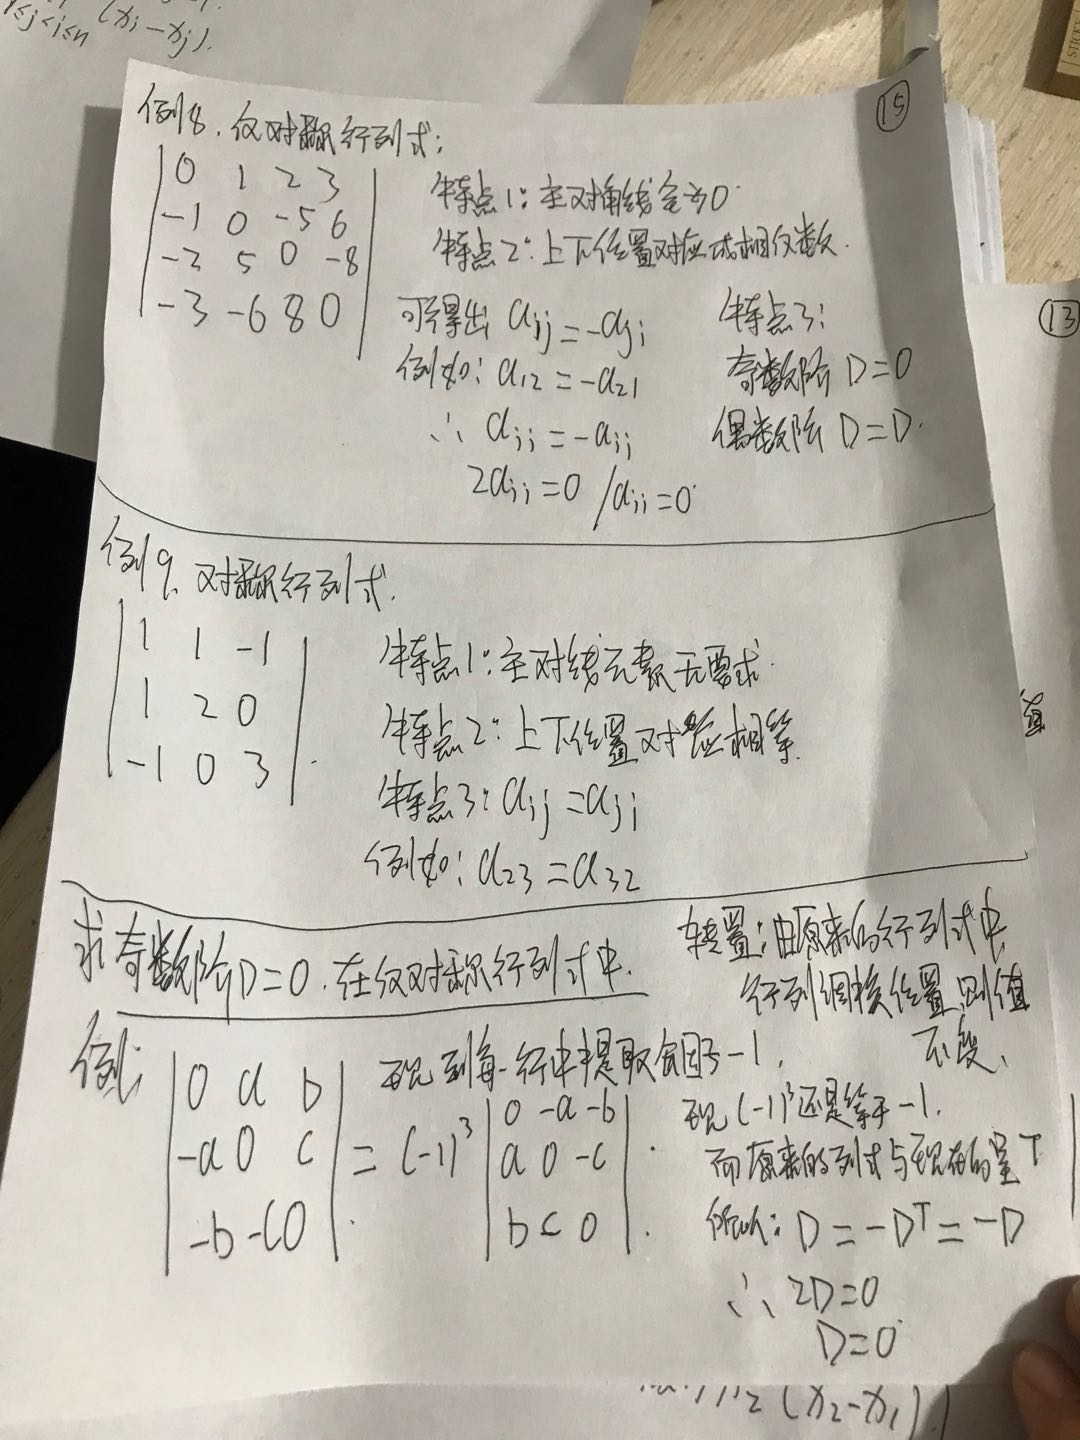 1≤j<i≤n (xi-xj).
⑮
例8、反对称行列式:
0 1 2 3
-1 0 -5 6
-2 5 0 -8
-3 -6 8 0
特点1:主对角线全为0
特点2:上下位置对应成相反数.
可得出 aij=-aji
例如:a12=-a21
∴ aii=-aii
2aii=0 /aii=0
特点3:
奇数阶 D=0
偶数阶 D=D.
⑬
例9、对称行列式.
1 1 -1
1 2 0
-1 0 3
特点1:主对线元素无要求
特点2:上下位置对应相等.
特点3:aij=aji
例如:a23=a32
值
求奇数阶D=0.在反对称行列式中.
转置:由原来的行列式中,
行列调换位置,则值
不变、
例:
0 a b
-a 0 c
-b -c 0
= (-1)³
现到每一行中提取公因子-1,
0 -a -b
a 0 -c
b c 0
现(-1)³还是等于-1.
而原来的列式与现在的呈T
所以:D=-Dᵀ=-D
∴ 2D=0
D=0
(x2-x1)